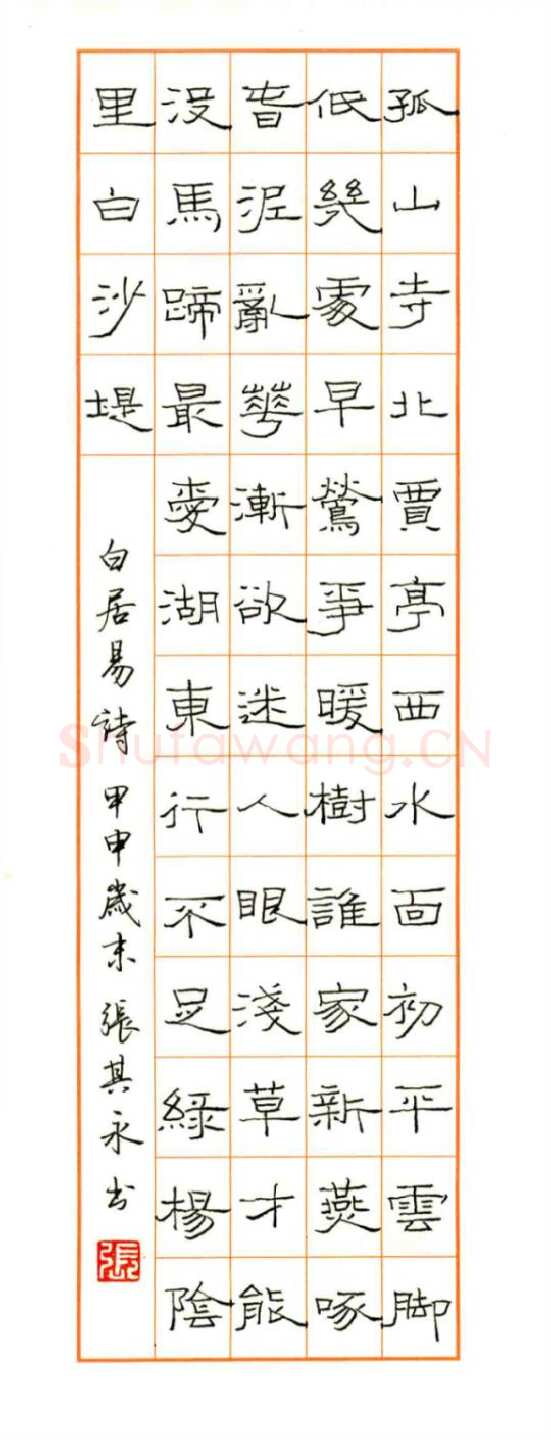 孤山寺北賈亭西水面初平雲脚
低幾處早鶯爭暖樹誰家新燕啄
春泥亂華漸欲迷人眼淺草才能
沒馬蹄最愛湖東行不足綠楊陰
里白沙堤
白居易詩 甲申歲末 張其永书
張
Shufawang.CN